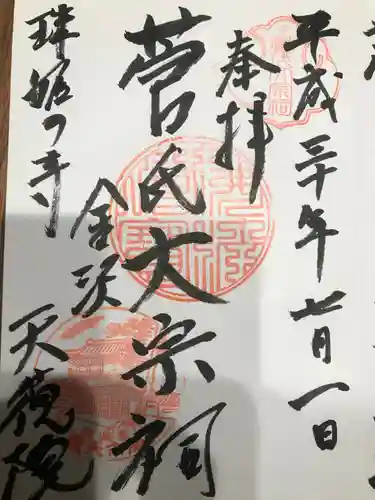 平成三十年七月一日
奉拝
菅氏大宗祠
珠姫の寺
金沢
天徳院